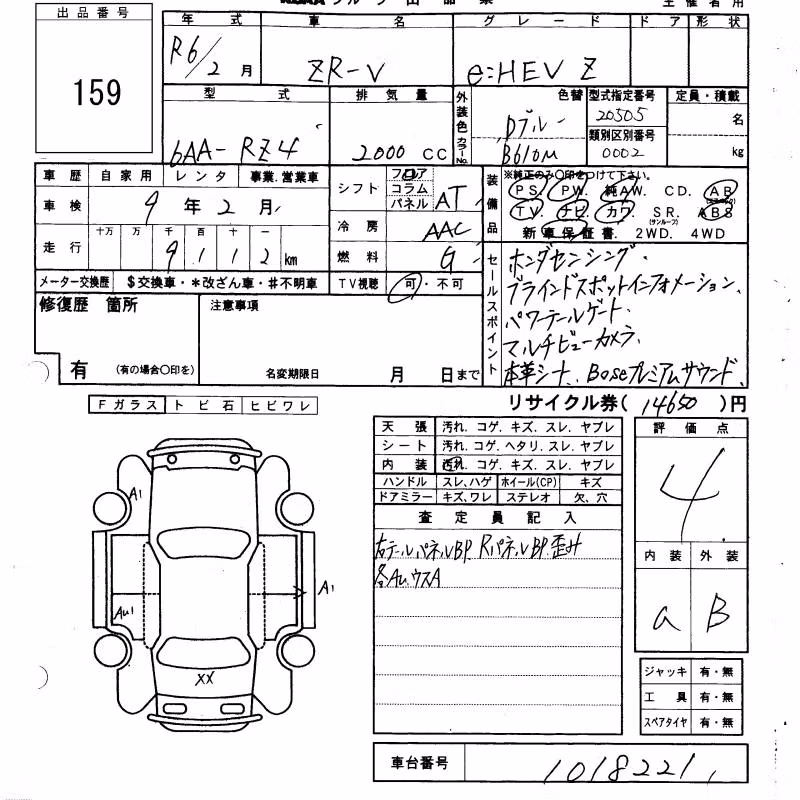 出品番号
159
年 式 車 名 グ レ ー ド ド ア 形 状
R6/2 月 ZR-V e:HEV Z
型 式 排 気 量 外装色 カラーNo. 色替 型式指定番号 定員・積載
6AA- RZ4 2000 CC Dブルー B610M 20505 名
類別区別番号
0002 kg
車 歴 自 家 用 レ ン タ 事業.営業車
車 検 9 年 2 月
走 行 十万 万 千 百 十 一
9 1 1 2 km
メーター交換歴 $交換車・*改ざん車・#不明車
シフト フロア コラム パネル AT
冷 房 AAC
燃 料 G
TV視聴 可・不可
装備品 ※純正のみ〇印をつけて下さい。
PS. PW. 純AW. CD. AB
TV. ナビ. カワ. SR. ABS
(サンルーフ)
新 車 保 証 書. 2WD. 4WD
セールスポイント
ホンダセンシング.
ブラインドスポットインフォメーション.
パワーテールゲート.
マルチビューカメラ.
本革シート. Boseプレミアムサウンド
修復歴 箇所
有 (有の場合〇印を)
注意事項
名変期限日 月 日まで
リサイクル券( 14650 )円
Fガラス ト ビ 石 ヒビワレ
A1
A1
AU1
XX
天 張 汚れ. コゲ. キズ. スレ. ヤブレ
シート 汚れ. コゲ. ヘタリ. スレ. ヤブレ
内 装 汚れ. コゲ. キズ. スレ. ヤブレ
ハンドル スレ、ハゲ ホイール(CP) キズ
ドアミラー キズ、ワレ ステレオ 欠、穴
査 定 員 記 入
右テールパネルBP. RパネルBP.歪み
各AU.ウスA
評 価 点
4
内 装 外 装
a B
ジャッキ 有・無
工 具 有・無
スペアタイヤ 有・無
車台番号 1018221